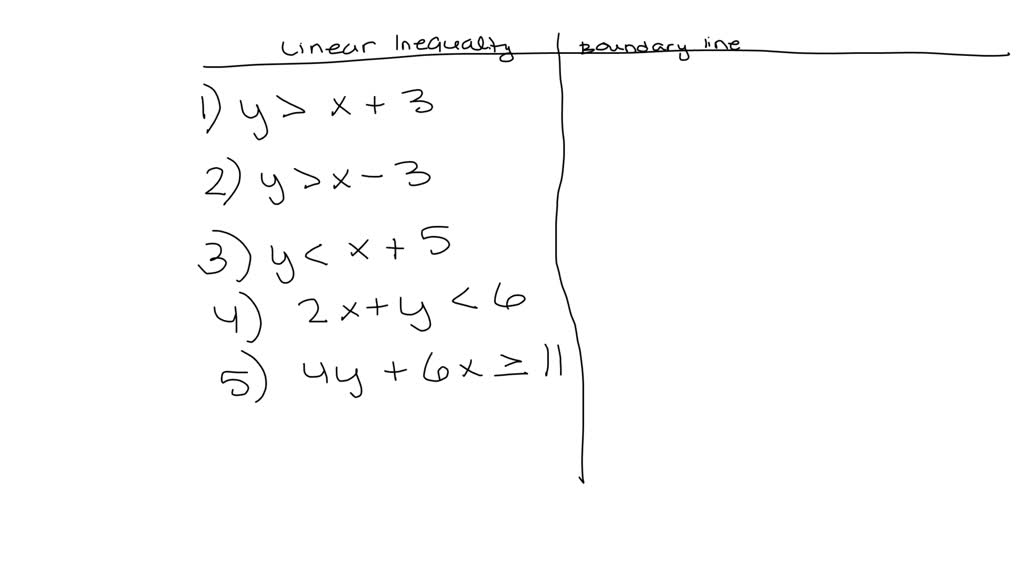 Linear Inequality Boundary line
1) y > x + 3
2) y > x - 3
3) y < x + 5
4) 2x + y < 6
5) 4y + 6x ≥ 11